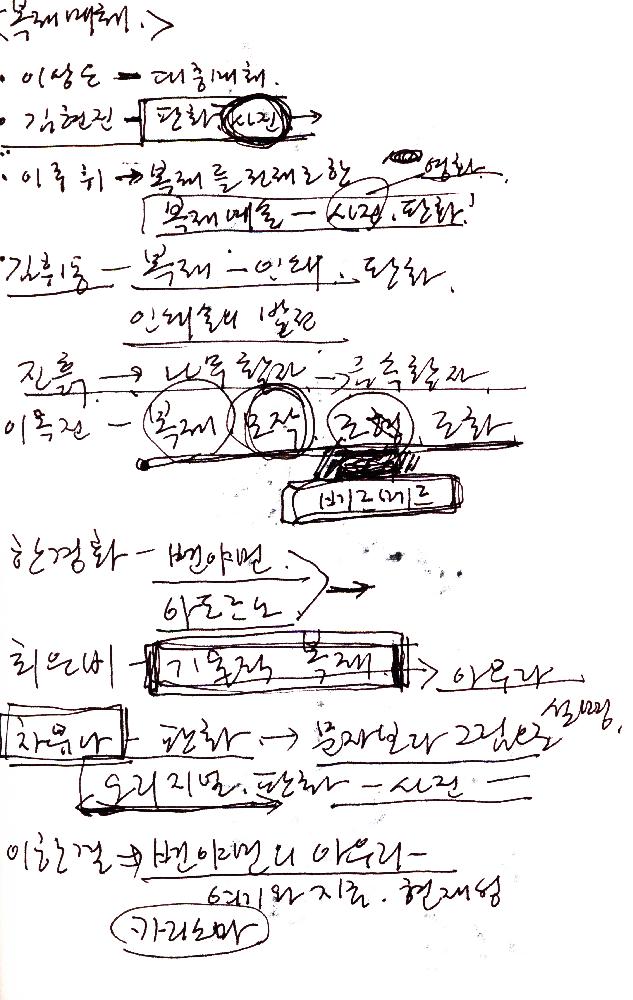 <복제매체.>
· 이상은 - 대중매체.
· 김현진 - 판화 사진 →
· 이휘 → 복제를 전제로한 영화.
복제예술 - 사진. 판화.
· 김휘동 - 복제 - 인쇄. 판화.
인쇄술의 발전
진흙 → 나무활자 → 금속활자
이옥진 - 복제 모작 모형 모화
한경화 - 벤야민.
아도르노 →
최은비 - 기술적 복제. → 아우라
차유나 - 판화. → 문자보다 그림으로 설명.
오리지널. 판화 - 사진
이한결 → 벤야민의 아우라 -
여기와 지금. 현재성